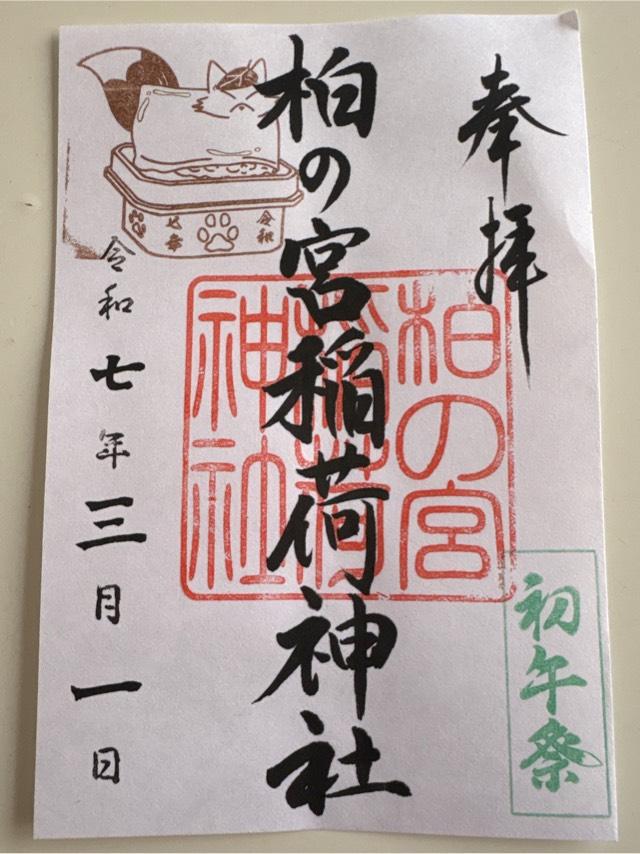 奉拝
柏の宮稲荷神社
柏の宮
稲荷
神社
初午祭
令和七年三月一日
令和
七年